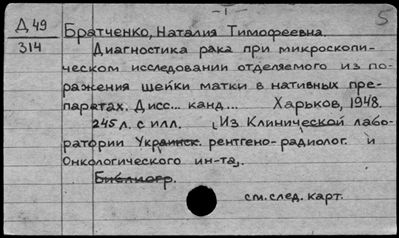 - I -
5
Д 49
314
Братченко, Наталия Тимофеевна.
Диагностика рака при микроскопи-
ческом исследовании отделяемого из по-
ражения шейки матки в нативных пре-
паратах. Дисс... канд... Харьков, 1948.
245 л. с илл. (Из Клинической лабо-
ратории Украинск. рентгено-радиолог. и
Онкологического ин-та).
Библиогр.
см. след. карт.